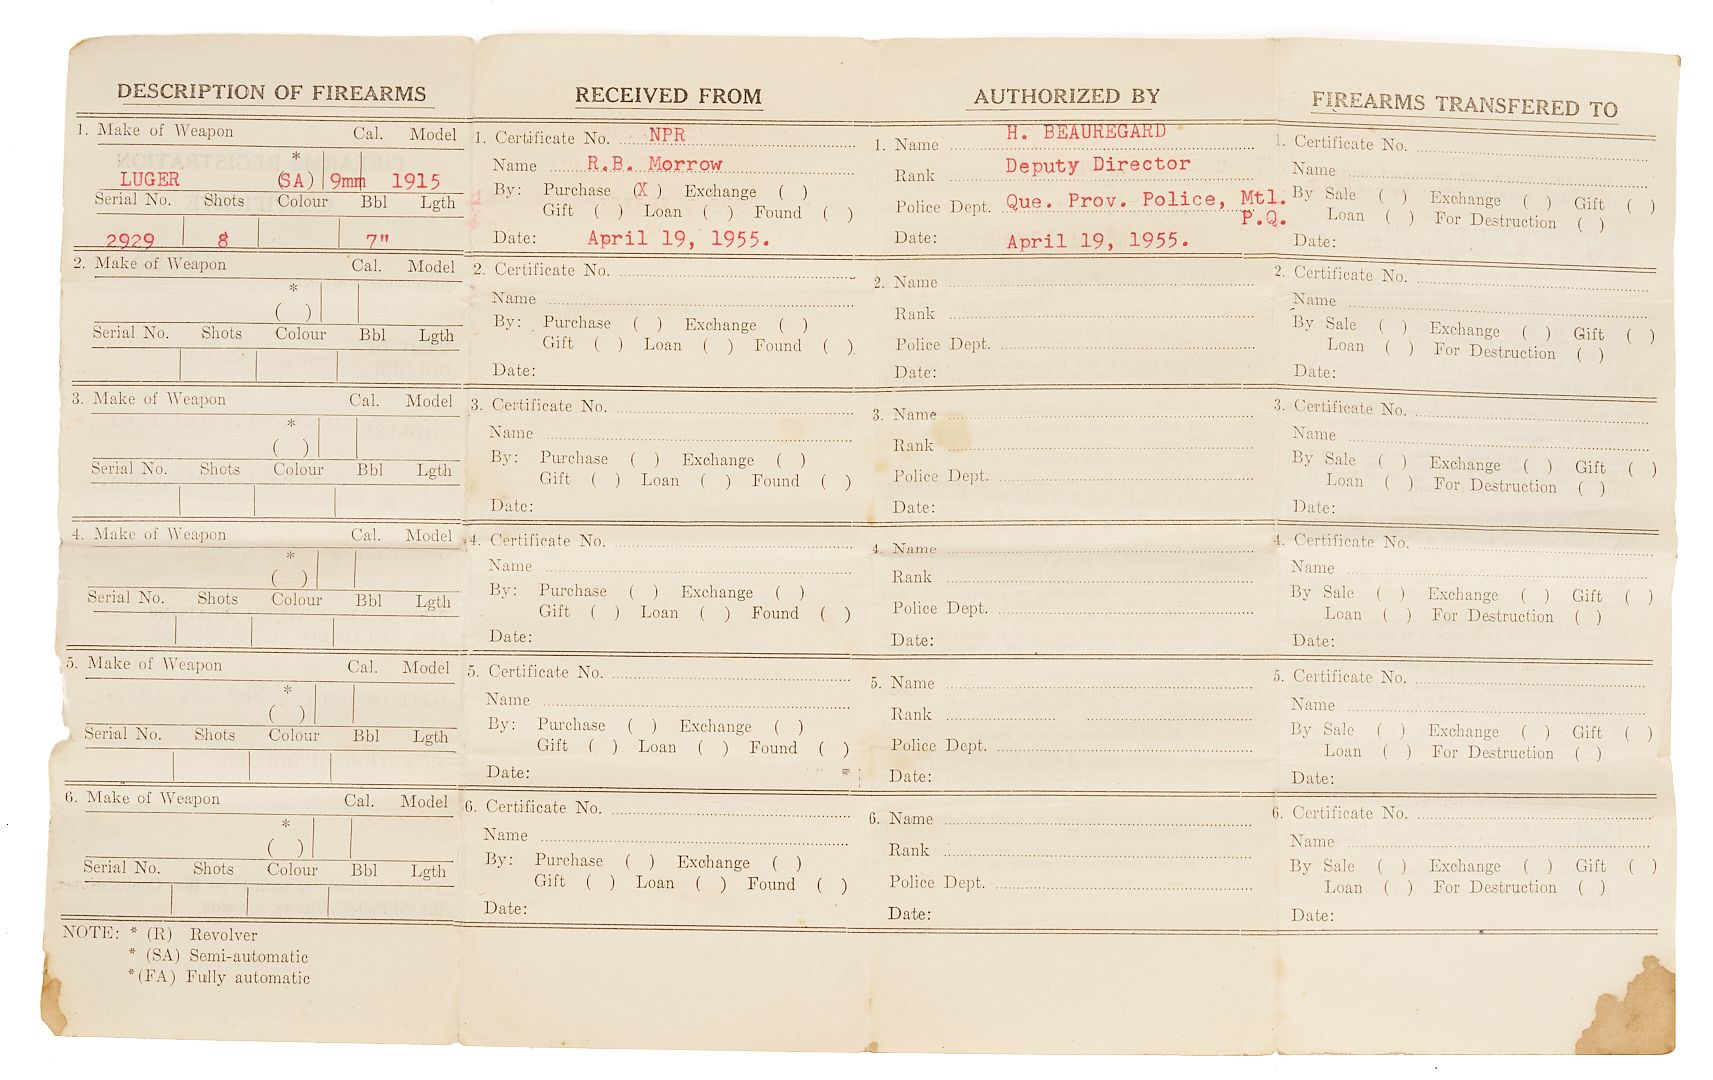 DESCRIPTION OF FIREARMS
1. Make of Weapon Cal. Model
*
LUGER (SA) 9mm 1915
Serial No. Shots Colour Bbl Lgth
2929 8 7"
2. Make of Weapon Cal. Model
*
( )
Serial No. Shots Colour Bbl Lgth
3. Make of Weapon Cal. Model
*
( )
Serial No. Shots Colour Bbl Lgth
4. Make of Weapon Cal. Model
*
( )
Serial No. Shots Colour Bbl Lgth
5. Make of Weapon Cal. Model
*
( )
Serial No. Shots Colour Bbl Lgth
6. Make of Weapon Cal. Model
*
( )
Serial No. Shots Colour Bbl Lgth
NOTE: * (R) Revolver
* (SA) Semi-automatic
* (FA) Fully automatic
RECEIVED FROM
1. Certificate No. NPR
Name R.B. Morrow
By: Purchase (X) Exchange ( )
Gift ( ) Loan ( ) Found ( )
Date: April 19, 1955.
2. Certificate No.
Name
By: Purchase ( ) Exchange ( )
Gift ( ) Loan ( ) Found ( )
Date:
3. Certificate No.
Name
By: Purchase ( ) Exchange ( )
Gift ( ) Loan ( ) Found ( )
Date:
4. Certificate No.
Name
By: Purchase ( ) Exchange ( )
Gift ( ) Loan ( ) Found ( )
Date:
5. Certificate No.
Name
By: Purchase ( ) Exchange ( )
Gift ( ) Loan ( ) Found ( )
Date:
6. Certificate No.
Name
By: Purchase ( ) Exchange ( )
Gift ( ) Loan ( ) Found ( )
Date:
AUTHORIZED BY
1. Name H. BEAUREGARD
Rank Deputy Director
Police Dept. Que. Prov. Police, Mtl.
P.Q.
Date: April 19, 1955.
2. Name
Rank
Police Dept.
Date:
3. Name
Rank
Police Dept.
Date:
4. Name
Rank
Police Dept.
Date:
5. Name
Rank
Police Dept.
Date:
6. Name
Rank
Police Dept.
Date:
FIREARMS TRANSFERED TO
1. Certificate No.
Name
By Sale ( ) Exchange ( ) Gift ( )
Loan ( ) For Destruction ( )
Date:
2. Certificate No.
Name
By Sale ( ) Exchange ( ) Gift ( )
Loan ( ) For Destruction ( )
Date:
3. Certificate No.
Name
By Sale ( ) Exchange ( ) Gift ( )
Loan ( ) For Destruction ( )
Date:
4. Certificate No.
Name
By Sale ( ) Exchange ( ) Gift ( )
Loan ( ) For Destruction ( )
Date:
5. Certificate No.
Name
By Sale ( ) Exchange ( ) Gift ( )
Loan ( ) For Destruction ( )
Date:
6. Certificate No.
Name
By Sale ( ) Exchange ( ) Gift ( )
Loan ( ) For Destruction ( )
Date: